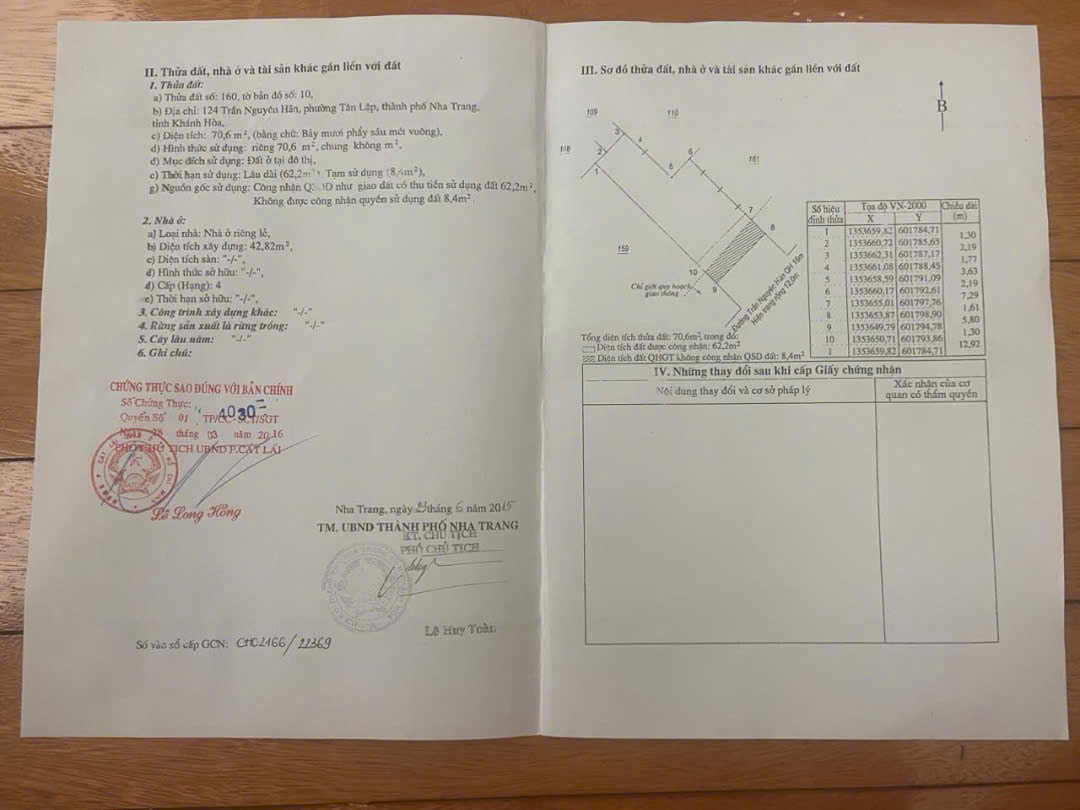 II. Thửa đất, nhà ở và tài sản khác gắn liền với đất
1. Thửa đất:
a) Thửa đất số: 160, tờ bản đồ số: 10,
b) Địa chỉ: 124 Trần Nguyên Hãn, phường Tân Lập, thành phố Nha Trang,
tỉnh Khánh Hòa,
c) Diện tích: 70,6 m², (bằng chữ: Bảy mươi phẩy sáu mét vuông),
d) Hình thức sử dụng: riêng 70,6 m², chung không m²,
đ) Mục đích sử dụng: Đất ở tại đô thị,
e) Thời hạn sử dụng: Lâu dài (62,2m²) Tạm sử dụng (8,4m²),
g) Nguồn gốc sử dụng: Công nhận QSDĐ như giao đất có thu tiền sử dụng đất 62,2m²,
Không được công nhận quyền sử dụng đất 8,4m².
2. Nhà ở:
a) Loại nhà: Nhà ở riêng lẻ,
b) Diện tích xây dựng: 42,82m²,
c) Diện tích sàn: "-/-",
d) Hình thức sở hữu: "-/-",
đ) Cấp (Hạng): 4
e) Thời hạn sở hữu: "-/-",
3. Công trình xây dựng khác: "-/-"
4. Rừng sản xuất là rừng trồng: "-/-"
5. Cây lâu năm: "-/-"
6. Ghi chú:
CHỨNG THỰC SAO ĐÚNG VỚI BẢN CHÍNH
Số Chứng Thực: 4030
Quyển Số 01 TP/CC-SCT/SGT
Ngày 28 tháng 03 năm 2016
PHÓ CHỦ TỊCH UBND P.CÁT LÁI
Lê Long Hồng
Nha Trang, ngày tháng 6 năm 2015
TM. UBND THÀNH PHỐ NHA TRANG
KT. CHỦ TỊCH
PHÓ CHỦ TỊCH
Lê Huy Toàn
Số vào sổ cấp GCN: CH02166/22369
III. Sơ đồ thửa đất, nhà ở và tài sản khác gắn liền với đất
B
109
110
161
159
1
2
3
4
5
6
7
8
9
10
Chỉ giới quy hoạch
giao thông
Đường Trần Nguyên Hãn QH 16m
Hiện trạng rộng 12,0m
Số hiệu đỉnh thửa Tọa độ VN-2000 Chiều dài (m)
X Y
1 1353659,82 601784,71
1,30
2 1353660,72 601785,65
2,19
3 1353662,31 601787,17
1,77
4 1353661,08 601788,45
3,63
5 1353658,59 601791,09
2,19
6 1353660,17 601792,61
7,29
7 1353655,01 601797,76
1,61
8 1353653,87 601798,90
5,80
9 1353649,79 601794,78
1,30
10 1353650,71 601793,86
12,92
1 1353659,82 601784,71
Tổng diện tích thửa đất: 70,6m², trong đó:
Diện tích đất được công nhận: 62,2m²
Diện tích đất QHGT không công nhận QSD đất: 8,4m²
IV. Những thay đổi sau khi cấp Giấy chứng nhận
Nội dung thay đổi và cơ sở pháp lý
Xác nhận của cơ
quan có thẩm quyền